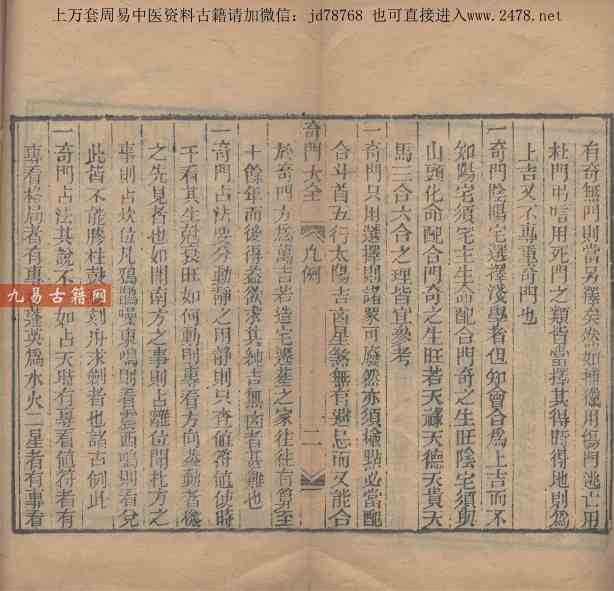 上万套周易中医资料古籍请加微信：jd78768 也可直接进入www.2478.net
有奇無門則當另擇矣然如捕獲用傷門逃亡用
杜門弔唁用死門之類皆當擇其得時得地則為
上吉又不專重奇門也
一奇門陰陽宅選擇淺學者但知會合為上吉而不
知陽宅須宅主生命配合門奇之生旺陰宅須與
山頭化命配合門奇之生旺若天祿天德天貴天
馬三合六合之理皆宜參考
一奇門只用選擇則諸家可廢然亦須撿點必當配
合斗首五行太陽吉凶星煞無有避忌而又能合
奇門大全
凡例
二
於奇門方為萬吉若造宅塟墓之家往往有算至
十餘年而後得葢欲求其純吉無凶者甚難也
一奇門占法要分動靜之用靜則只查値符値使時
干看其生尅衰旺如何動則專看方向葢動者機
之先見者也如聞南方之事則占離位聞北方之
事則占坎位凡鴉鵲噪東鳴則看震西鳴則看兌
此皆不能膠柱鼓刻舟求劍者也諸占倒此
一奇門占法其說不如占天時有專看値符者有
專看格局者有專蓬英為水火二星者有專看
九易古籍网